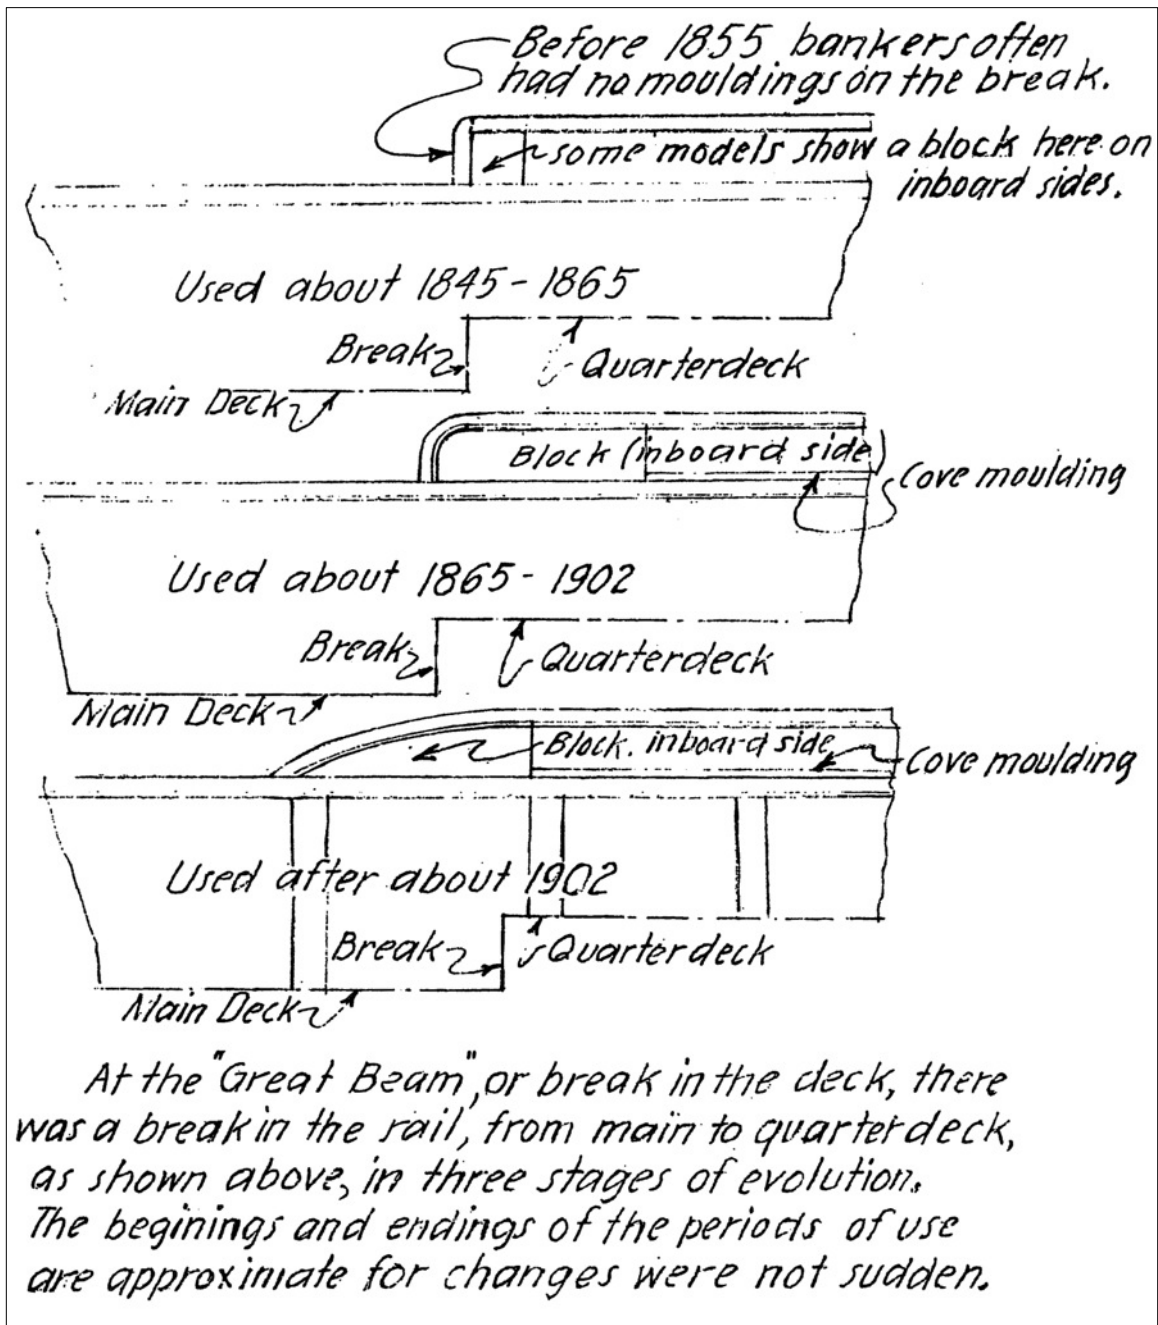 Before 1855 bankers often
had no mouldings on the break.
some models show a block here on
inboard sides.
Used about 1845-1865
Break
Quarterdeck
Main Deck
Block (inboard side)
Cove moulding
Used about 1865-1902
Break
Quarterdeck
Main Deck
Block. inboard side
Cove moulding
Used after about 1902
Break
Quarterdeck
Main Deck
At the "Great Beam", or break in the deck, there
was a break in the rail, from main to quarterdeck,
as shown above, in three stages of evolution.
The beginings and endings of the periods of use
are approximate for changes were not sudden.